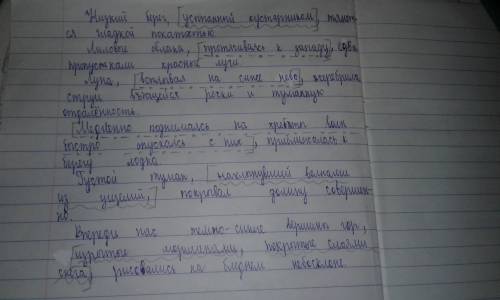 Низкий берег, [усеянный кустарником], тянет-
ся гладкой покатостью
Лиловые облака, [протягиваясь к западу],
пропускали красные лучи.
Луна, [всплывая на синее небо], осеребрила
струи бьющейся росы и туманную
отдаленность
[Медленно поднимаясь на хребты волн
быстро опускаясь с них], приближалась к
берегу лодка
Густой туман, [нахлынувший волнами
из ущелий,] покрывал долину совершен-
но.
Впереди нас темно-синие вершины гор,
[изрытые морщинами, покрытые слоями
снега], рисовались на бледном небосклоне